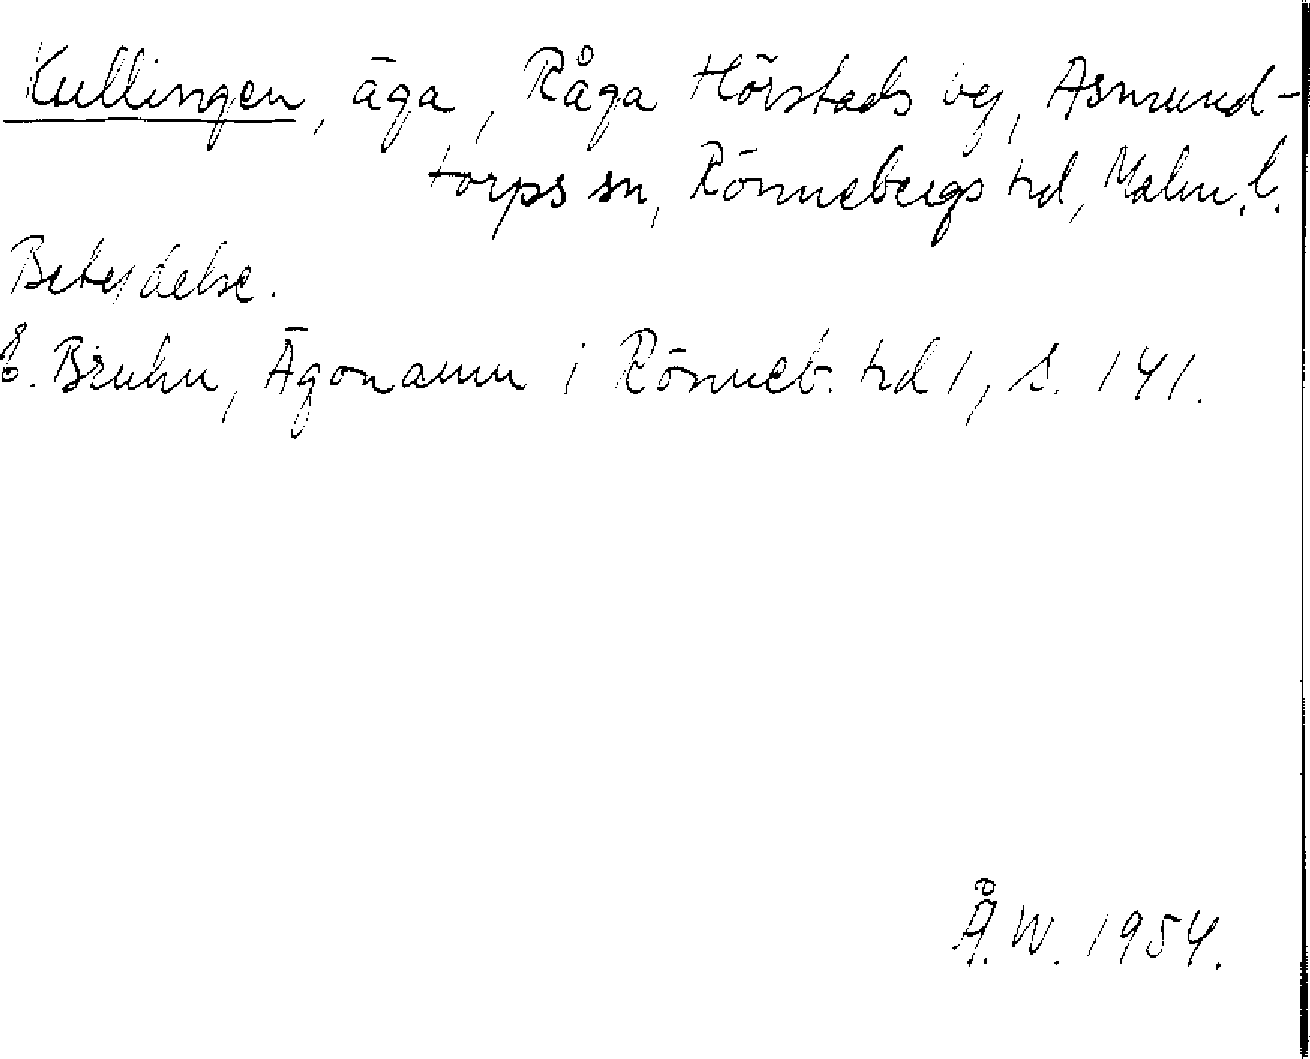 Kullingen, äga, Råga Hörstads by, Asmund-
torps sn, Rönnebergs hd, Malm. l.
Betydelse.
E. Bruhn, Ägonamn i Rönneb. hd 1, s. 141.
Å.W. 1954.